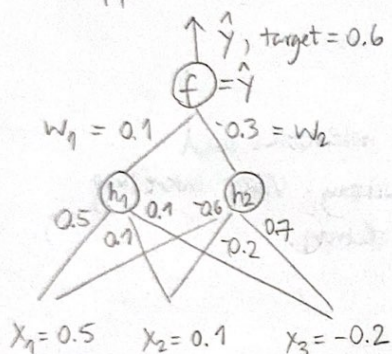 Ŷ, target = 0.6
f = Ŷ
W₁ = 0.1 -0.3 = W₂
h₁ h₂
0.5 0.1 0.1 -0.6 -0.2 0.7
X₁ = 0.5 X₂ = 0.1 X₃ = -0.2